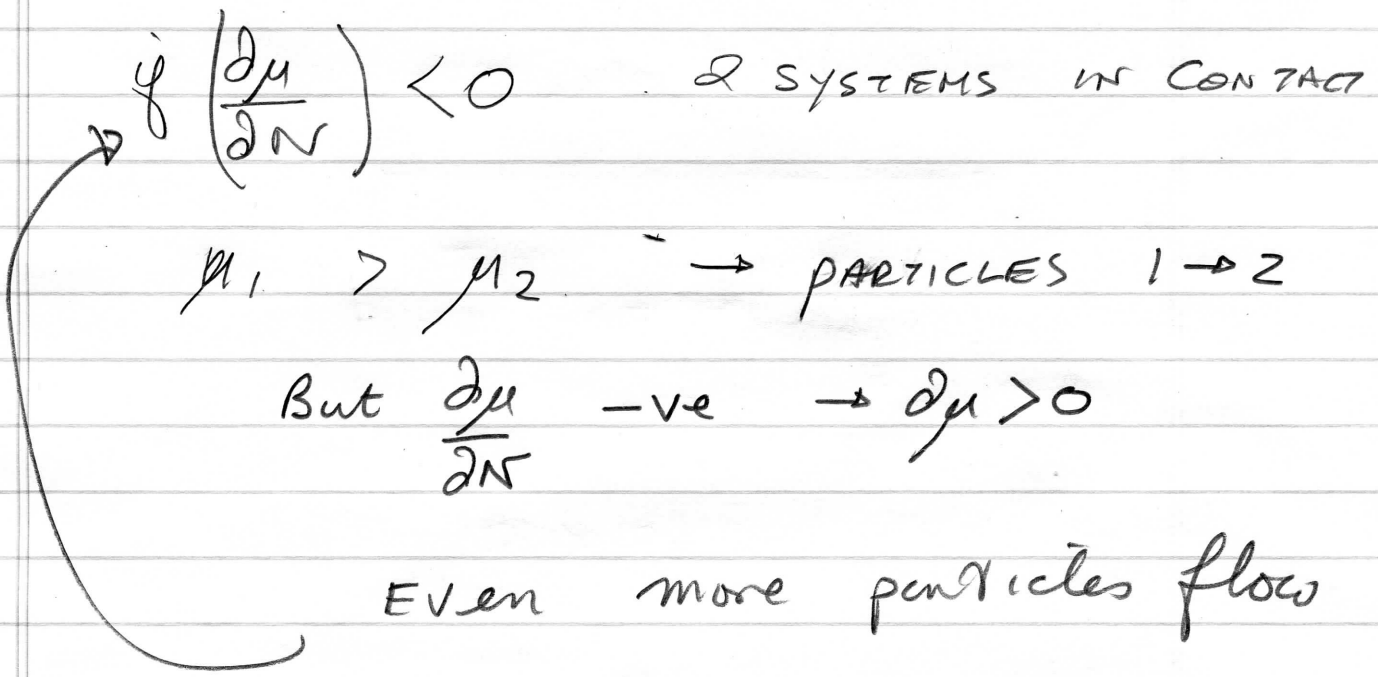 if (∂μ/∂N) < 0 2 SYSTEMS IN CONTACT
μ₁ > μ₂ → PARTICLES 1 → 2
But ∂μ/∂N -ve → ∂μ > 0
Even more particles flow